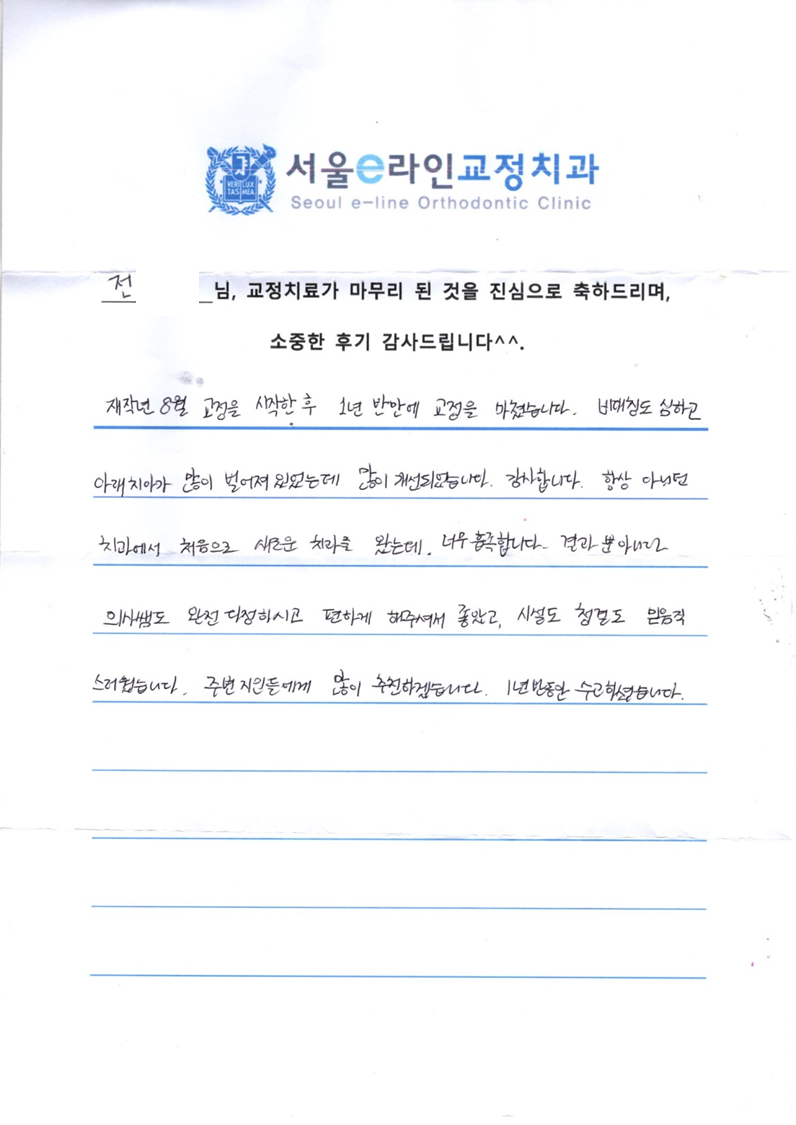 VERI LUX
TAS MEA
서울e라인교정치과
Seoul e-line Orthodontic Clinic
전 님, 교정치료가 마무리 된 것을 진심으로 축하드리며,
소중한 후기 감사드립니다^^.
재작년 8월 교정을 시작한 후 1년 반만에 교정을 마쳤습니다. 비대칭도 심하고
아래치아가 많이 벌어져 있었는데 많이 개선되었습니다. 감사합니다. 항상 다니던
치과에서 처음으로 새로운 치과를 왔는데, 너무 흡족합니다. 결과 뿐 아니라
의사쌤도 완전 다정하시고 편하게 해주셔서 좋았고, 시설도 청결도 믿음직
스러웠습니다. 주변 지인들에게 많이 추천하겠습니다. 1년 반동안 수고하셨습니다.